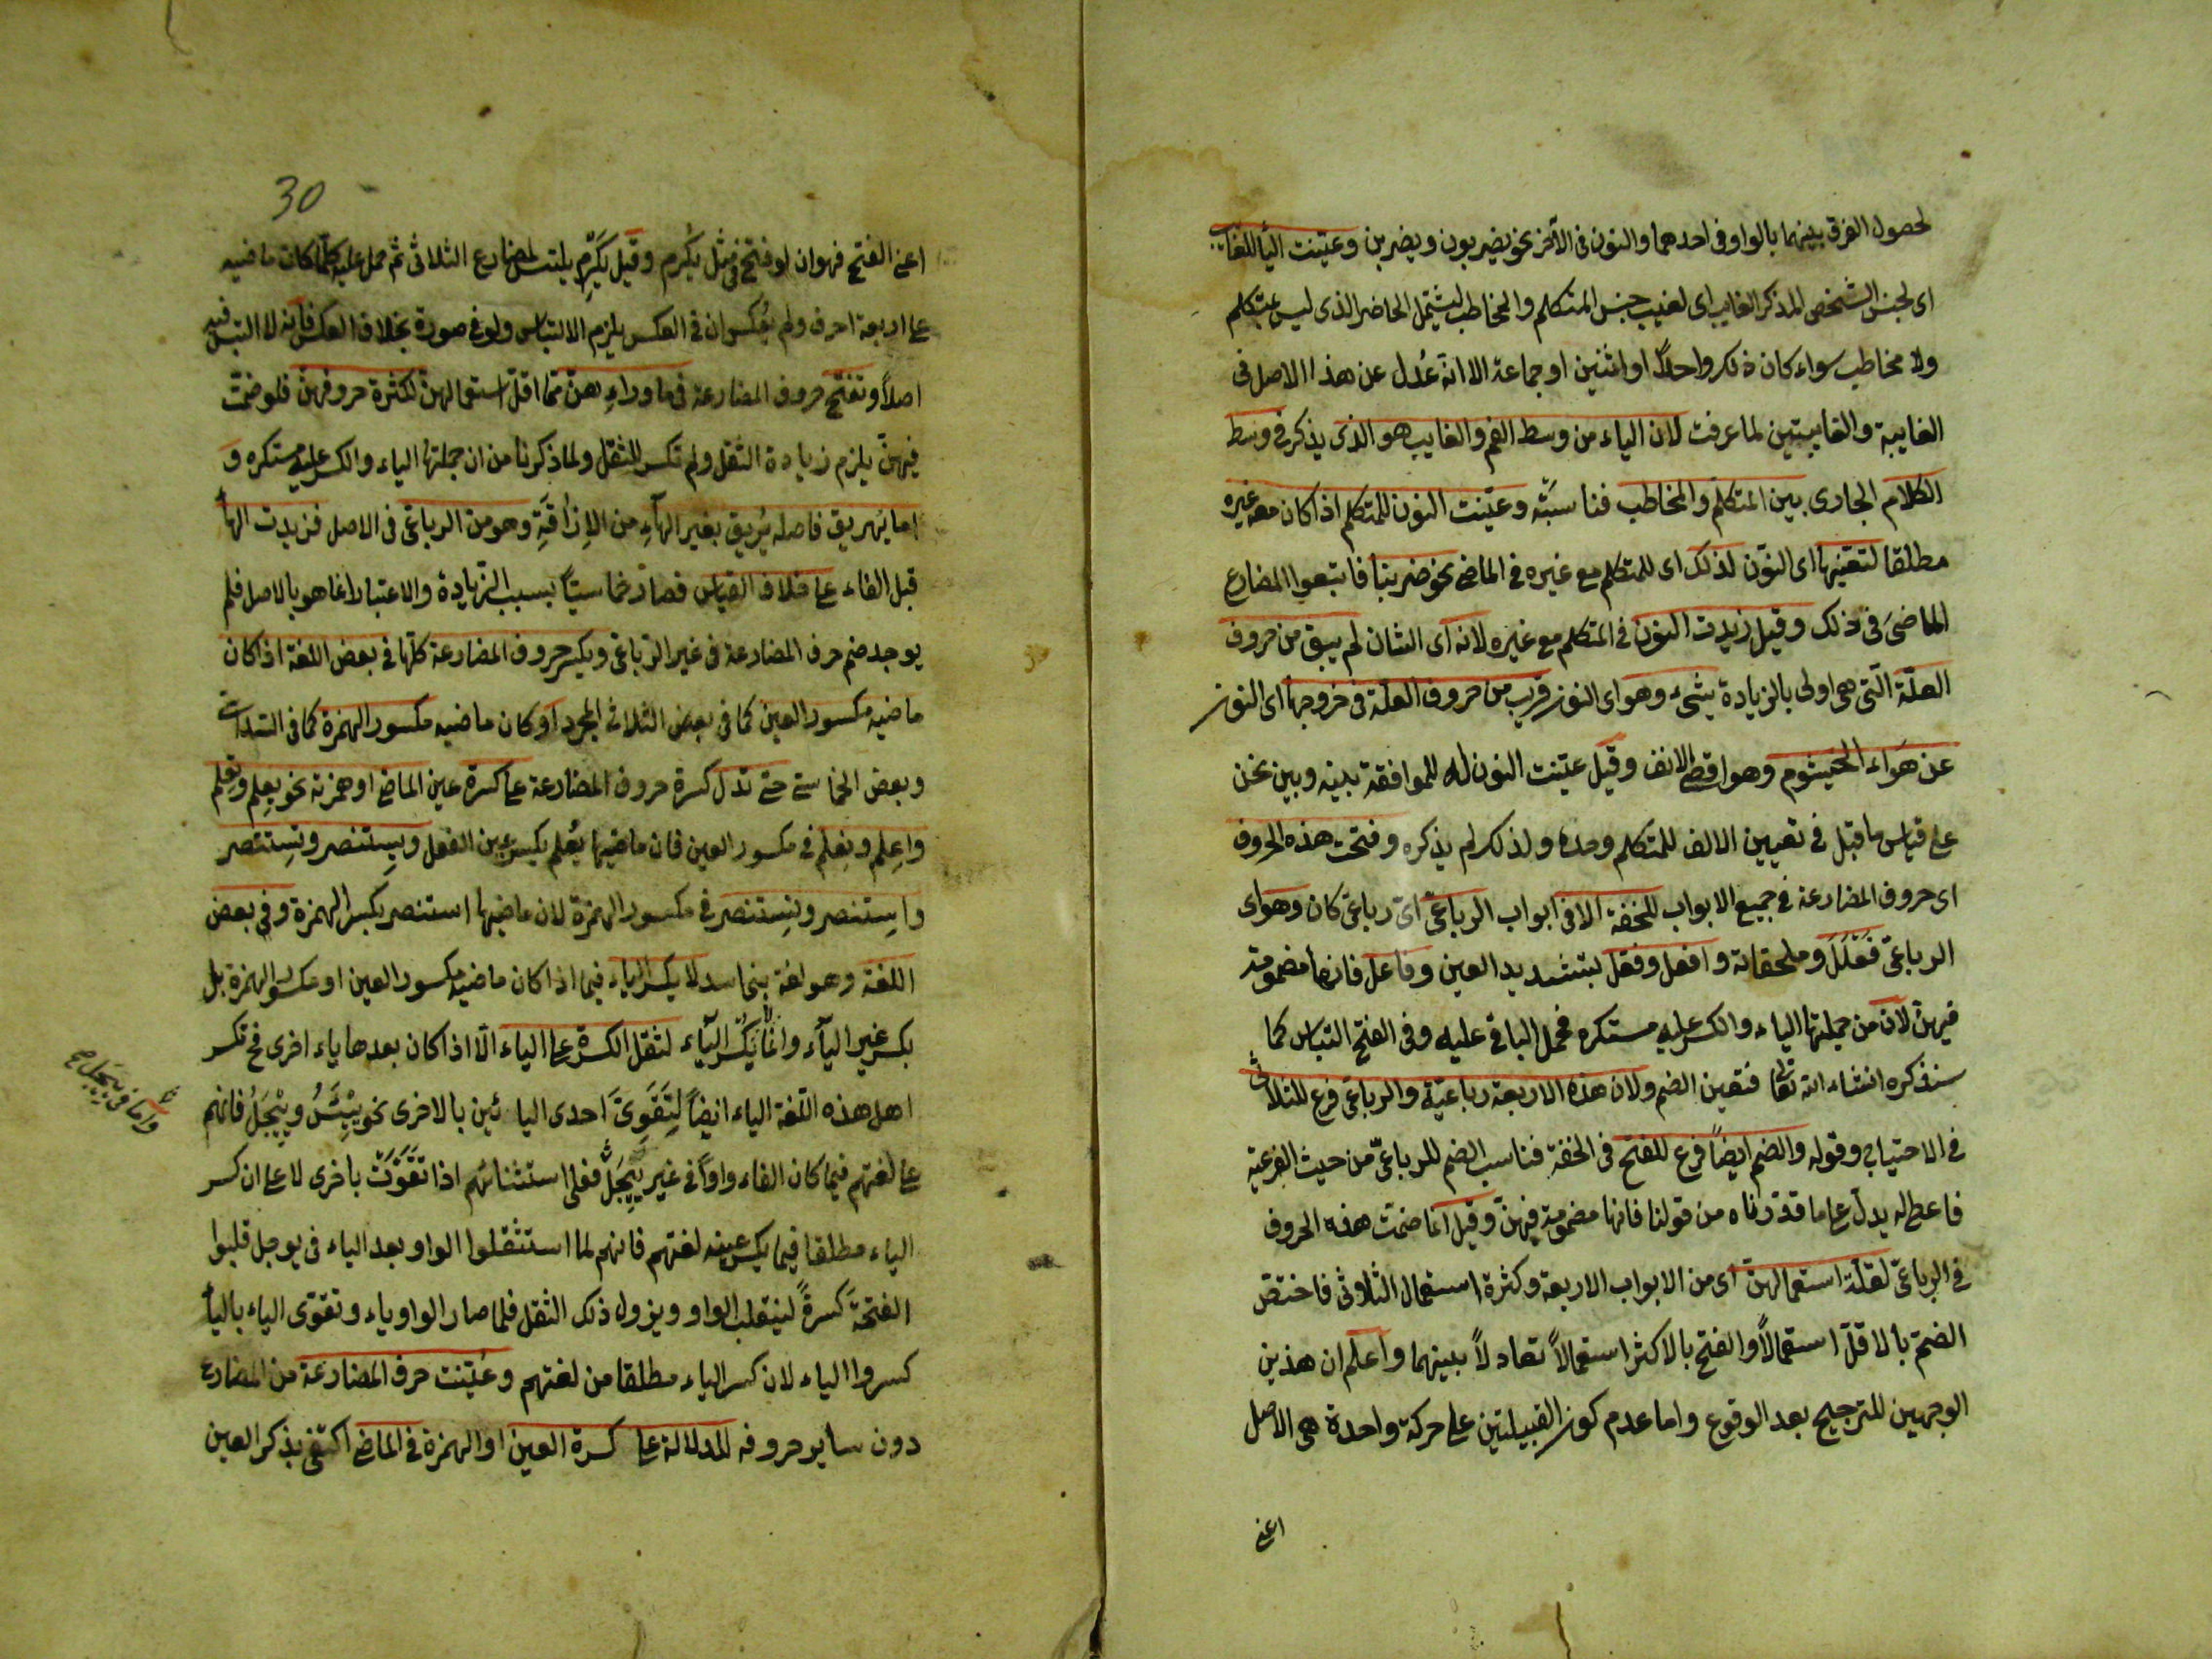 لحصول الفرق بينهما بالواو فى احدهما والنون فى الآخر نحو يضربون ويضربن وعيّنت الياء للغائب
اى لجنس الشخص المذكر الغايب اى لغيب جنس المتكلم والمخاطب ليشتمل الحاضر الذى ليس بمتكلم
ولا مخاطب سواء كان ذلك واحدًا او اثنين او جماعة الا انه عُدل عن هذا الاصل فى
الغايبة والغايبتين لما عرفت لان الياء من وسط الفم والغايب هو الذى يذكر فى وسط
الكلام الجارى بين المتكلم والمخاطب فناسبته وعيّنت النون للمتكلم اذا كان معه غيره
مطلقا لتعيّنها اى النون لذلك اى للمتكلم مع غيره فى الماضى نحو ضربنا فاتبعوا المضارع
الماضىَ فى ذلك وقيل زيدت النون فى المتكلم مع غيره لانه اى الشان لم يبق من حروف
العلّة التى هى اولى بالزيادة شئ وهو اى النون قريب من حروف العلّة فى خروجها اى النون
عن هَواء الخيشوم وهو اقصى الانف وقيل عيّنت النون له للموافقة بينه وبين نحن
على قياس ما قبل فى تعيين الالف للمتكلم وحده ولذلك لم يذكره وفتحت هذه الحروف
اى حروف المضارعة فى جميع الابواب للخفة الا فى ابواب الرباعىّ اىّ رباعىّ كان وهو اى
الرباعىّ فَعْلَلَ وملحقاته وافعل وفعّل بتشديد العين وفاعل فانها مضمومة
فيهنّ لانّ من جملتها الياء والكسر عليه مستكره فحمل الباقى عليه وفى الفتح التباس كما
سنذكره انشاء الله تعالى فتعين الضم ولان هذه الاربعة رباعيّة والرباعى فرع للثلاثى
فى الاحتياج وقوله والضم ايضاً فرع للفتح فى الخفة فناسب الضم للرباعىّ من حيث الفرعية
فاعطى له يدلّ على ما قدّرناه من قولنا فانها مضمومة فيهنّ وقيل انما ضمت هذه الحروف
فى الرباعىّ لقلّة استعمالهنّ اى من الابواب الاربعة وكثرة استعمال الثلاثى فاختصّ
الضمّ بالاقلّ استعمالاً والفتح بالاكثر استعمالاً تعادلاً بينهما واعلم ان هذين
الوجهين للترجيح بعد الوقوع واما عدم كون القبيلتين على حركة واحدة هى الاصل
اعنى
30
اعنى الفتح فهو ان لو فتح فى مثل يكرم وقيل يَكرِم يلتبس بمضارع الثلاثى ثم حمل عليه كلّما كان ماضيه
على اربعة احرف ولم يعكس وان فى العكس يلزم الالتباس ولو فى صورة بخلاف العكس فانه لا التباس فيه
اصلاً وتفتح حروف المضارعة فى ما وراء هنّ مما اقلّ استعمالهنّ لكثرة حروفهنّ فلو ضمّت
فيهنّ يلزم زيادة الثقل ولم تكسر للثقل ولما ذكرنا من ان جملتها الياء والكسر عليه مستكره و
اما يهريق فاصله يُريق بغير الهآءِ من الاِراقَةِ وهو من الرباعى فى الاصل فزيدت الهآ
قبل الفاء على خلاف القياس فصار خماسيّا بسبب الزيادة والاعتبار انما هو بالاصل فلم
يوجد ضم حرف المضارعة فى غير الرباعى ويكسر حروف المضارعة كلّها فى بعض اللغة اذا كان
ماضيه مكسور العين كما فى بعض الثلاثى المجرد او كان ماضيه مكسور الهمزة كما فى السداسى
وبعض الخماسى حتى تدل كسرة حروف المضارعة على كسرة عين الماضى او همزته نحو يِعلم وتِعلم
واِعلم ونِعلم فى مكسور العين فان ماضيها يُعلم بكسر عين الفعل ويِستنصر وتِستنصر
واِستنصر ونِستنصر فى مكسور الهمزة لان ماضيها استنصر بكسر الهمزة وفى بعض
اللغة وهو لغة بنى اسد لا يكسر الياء فيما اذا كان ماضيه مكسور العين او مكسور الهمزة بل
بكسر غير اليآء وانما لا يَكْسِر اليآء لثقل الكسرة على الياء الّا اذا كان بعدها ياء اخرى فح تكسر
اهل هذه اللّغة الياء ايضاً لِتَقَوِّىَ احدى اليائين بالاخرى نحو يِيْئَسُ ويِيْجَلُ فانهم
على لغتهم فيما كان الفاء واواً فى غير يِيْجَلُ فعلى استثنائهم اذا تَقَوَّتْ باخرى لا على ان كسر
الياء مطلقا فيما يكسر عينه لغتهم فانهم لما استثقلوا الواو بعد الياء فى يوجل قلبوا
الفتحةَ كسرةً لينقلب الواو ويزول ذلك الثقل فلما صار الواو ياء وتقوى الياء بالياء
كسروا الياء لان كسر الياء مطلقا من لغتهم وعُيّنت حرف المضارعة من المضارع
دون ساير حروفه للدلالة على كسرة العين او الهمزة فى الماضى اكتفى بذكر العين
واما فى يِيجَل صح